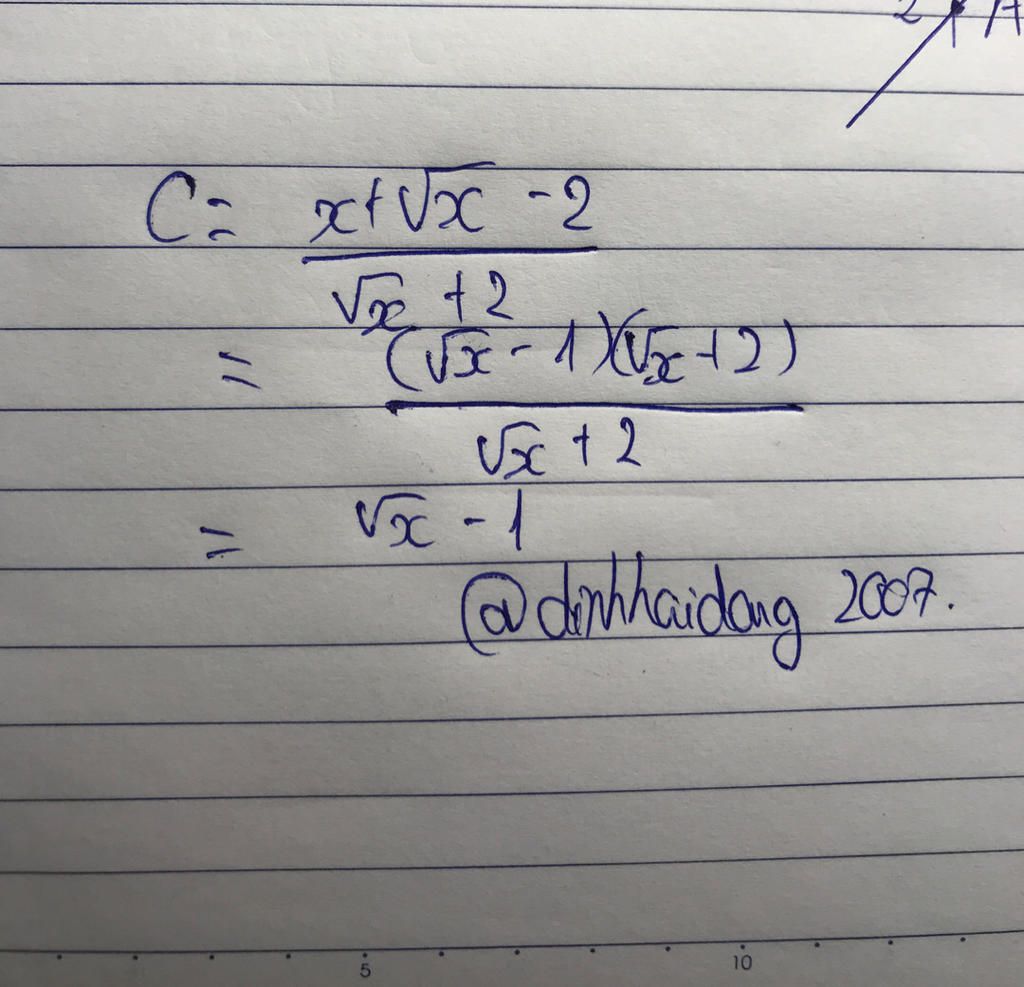 2 A
C = x+√x - 2
√x + 2
= (√x - 1)(√x + 2)
√x + 2
= √x - 1
@dinhhaidang 2007.
5 10